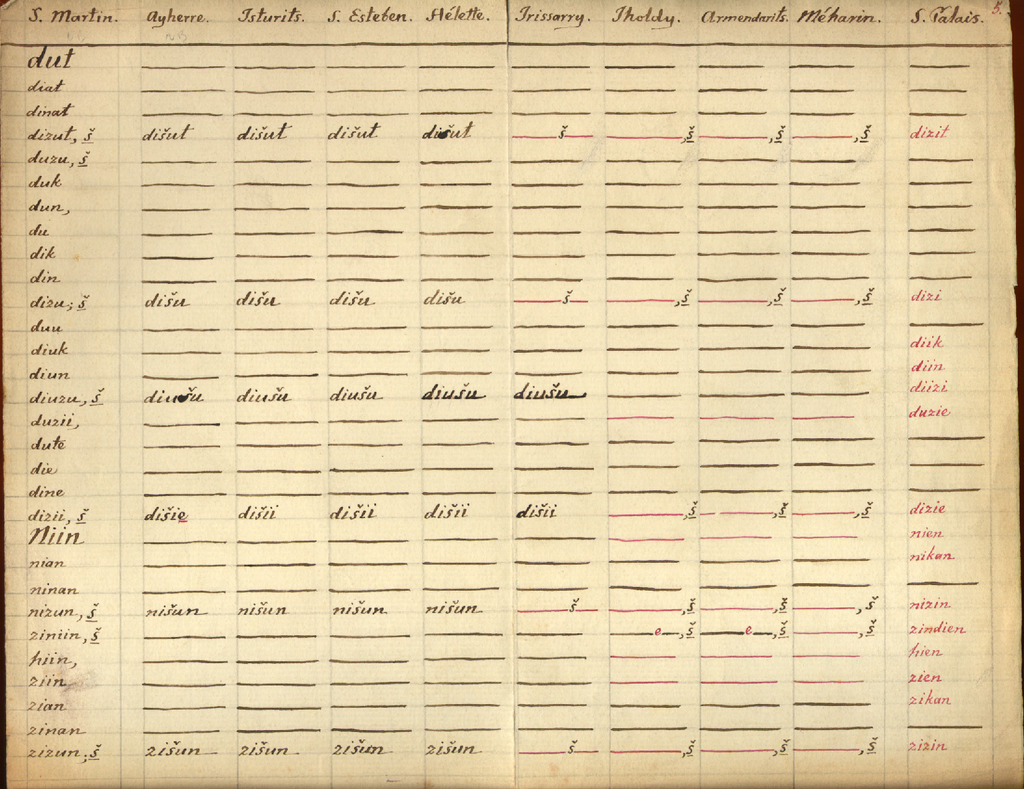 5.
S. Martin. Ayherre. Isturits. S. Esteben. Hélette. Irissarry. Iholdy. Armendarits. Méharin. S. Palais.
dut — — — — — — — — —
diat — — — — — — — — —
dinat — — — — — — — — —
dizut, š dišut dišut dišut dišut —š— —,š —,š —,š dizit
duzu, š — — — — — — — — —
duk — — — — — — — — —
dun, — — — — — — — — —
du — — — — — — — — —
dik — — — — — — — — —
din — — — — — — — — —
dizu; š dišu dišu dišu dišu —š— —,š —,š —,š dizi
duu — — — — — — — — —
diuk — — — — — — — — diik
diun — — — — — — — — diin
diuzu, š diušu diušu diušu diušu diušu — — — diizi
duzii, — — — — — — — — duzie
dute — — — — — — — — —
die — — — — — — — — —
dine — — — — — — — — —
dizii, š dišie dišii dišii dišii dišii —,š —,š —,š dizie
Niin — — — — — — — — nien
nian — — — — — — — — nikan
ninan — — — — — — — — —
nizun, š nišun nišun nišun nišun —š— —,š —,š —,š nizin
ziniin, š — — — — — —e—,š —e—,š —,š zindien
hiin, — — — — — — — — hien
ziin — — — — — — — — zien
zian — — — — — — — — zikan
zinan — — — — — — — — —
zizun, š zišun zišun zišun zišun —š— —,š —,š —,š zizin